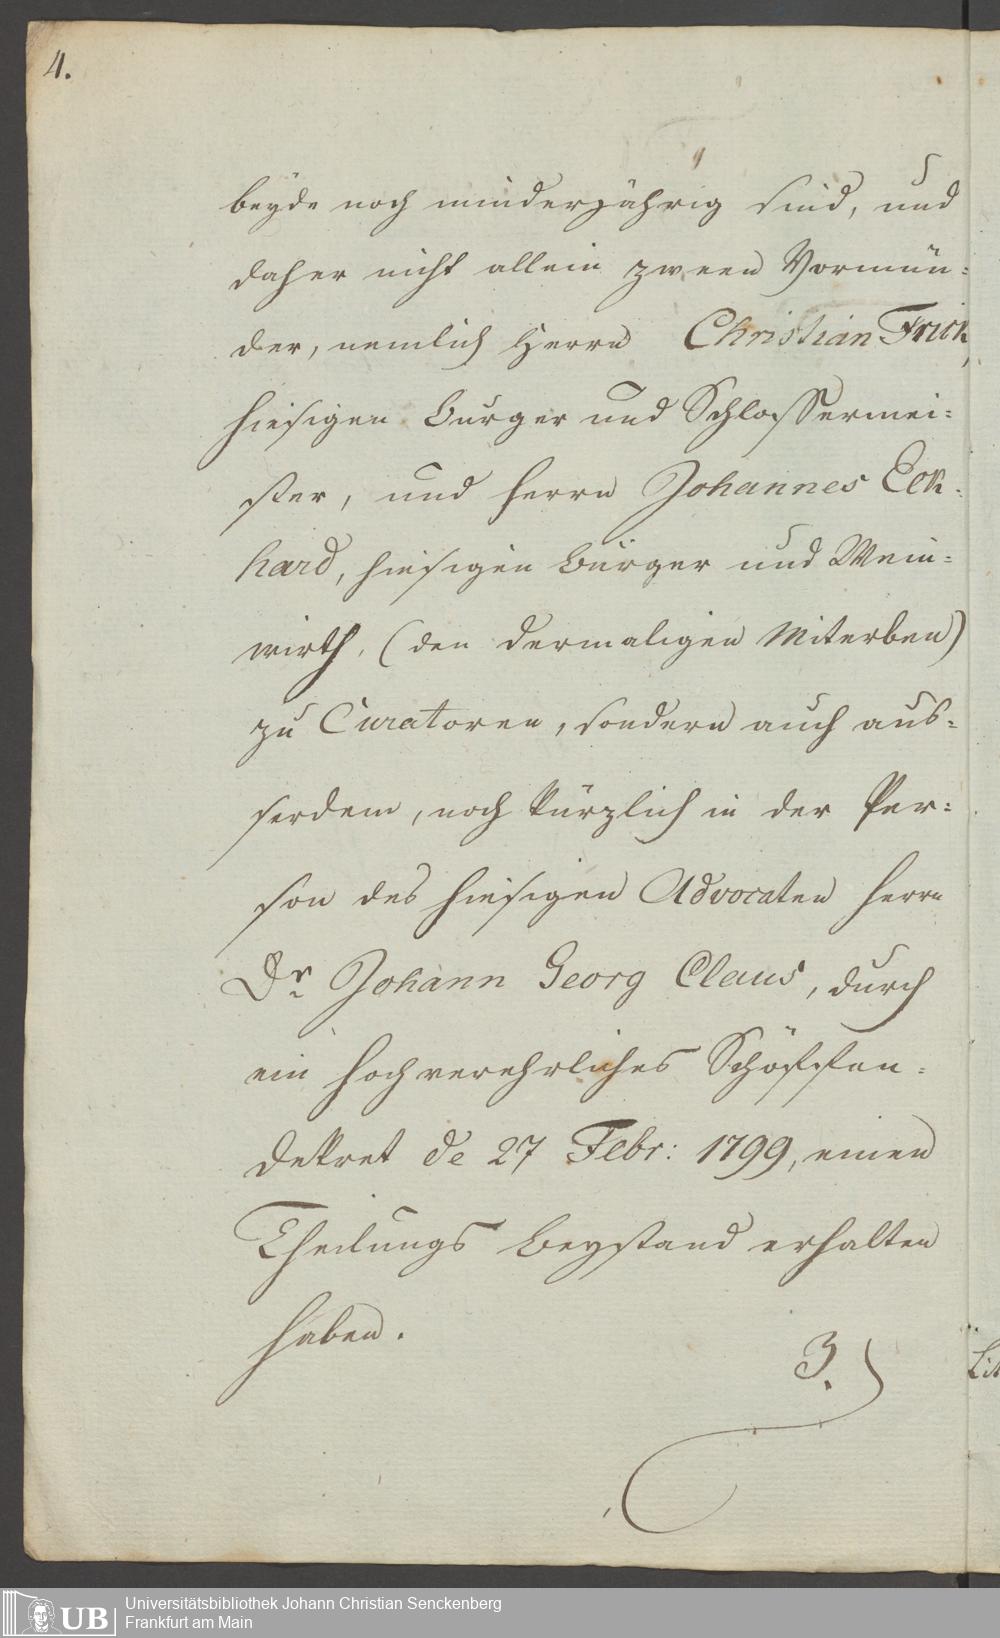 4.
beyde noch minderjährig sind, und
daher nicht allein zween Vormün=
der, nemlich Herrn Christian Frick,
hiesigen Burger und Schlossermei=
ster, und Herrn Johannes Eck=
hard, hiesigen Bürger und Wein=
wirth, (den dermaligen Miterben)
zu Curatoren, sondern auch aus=
serdem, noch kürzlich in der Per=
son des hiesigen Advocaten Herrn
Dr. Johann Georg Claus, durch
ein hochverehrliches Schöffen=
dekret de 27 Febr: 1799, einen
Theilungs Beystand erhalten
haben.
3.)
Universitätsbibliothek Johann Christian Senckenberg
Frankfurt am Main
UB